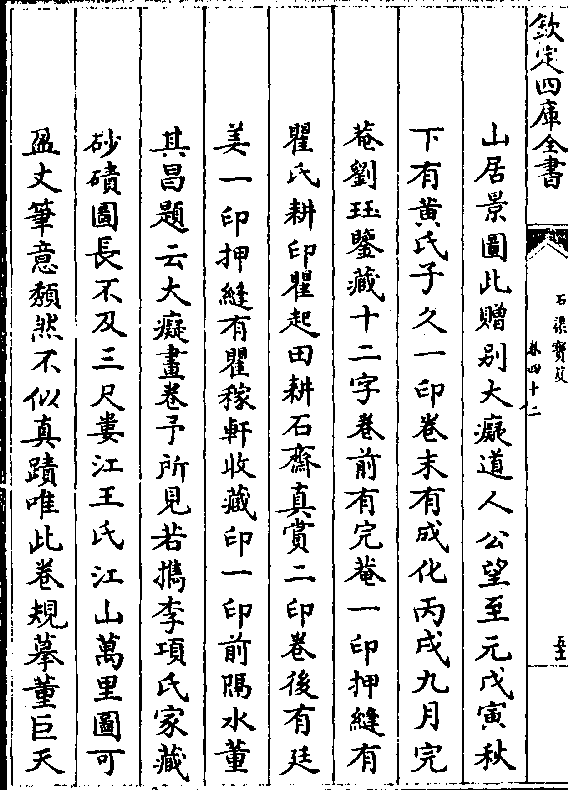 欽定四庫全書
石渠寳笈
卷四十二
山居景圖此贈别大癡道人公望至元戊寅秋
下有黄氏子久一印卷末有成化丙戌九月完
菴劉珏鑒藏十二字卷前有完菴一印押縫有
瞿氏耕印瞿起田耕石齋真賞二印卷後有廷
美一印押縫有瞿稼軒收藏印一印前隔水董
其昌題云大癡畫卷予所見若擕李項氏家藏
砂磧圖長不及三尺婁江王氏江山萬里圖可
盈丈筆意頽然不似真蹟唯此卷規摹董巨天